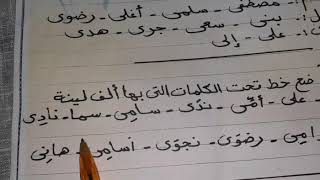 مصطفى - سلمى - أغلى - رضوى
يبنى - سعى - جرى - هدى
على - إلى
ضع خط تحت الكلمات التى بها ألف لينة
على - أمى - ندى - سامى - سما - نادى
رضوى - نجوى - أسامى - هانى